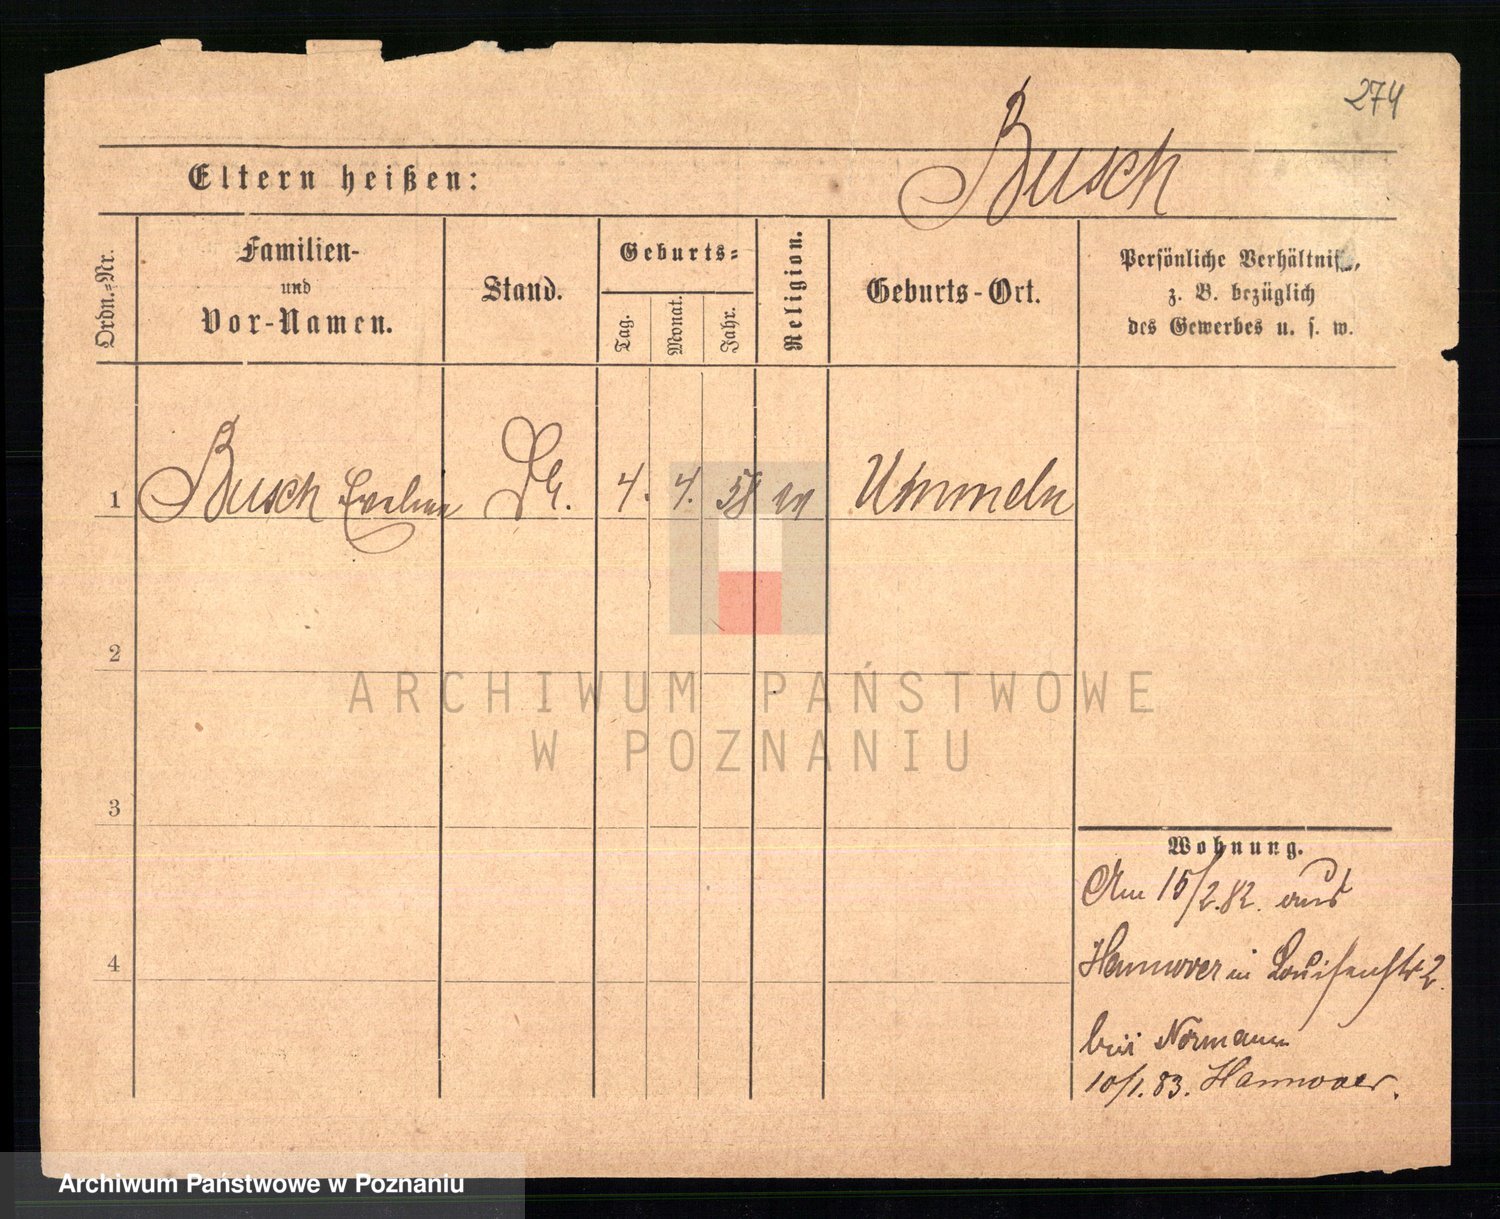 274
Busch
Eltern heißen:
Ordn.-Nr.
Familien-
und
Vor-Namen.
Stand.
Geburts-
Tag.
Monat.
Jahr.
Religion.
Geburts-Ort.
Persönliche Verhältnisse,
z. B. bezüglich
des Gewerbes u. s. w.
1 Busch 4. 4. 58 Ummeln
2
3
4
Wohnung.
Am 15/2.82. aus
Hannover in Louisenstr 2.
bei Normann
10/1.83. Hannover.
ARCHIWUM PAŃSTWOWE
W POZNANIU
Archiwum Państwowe w Poznaniu